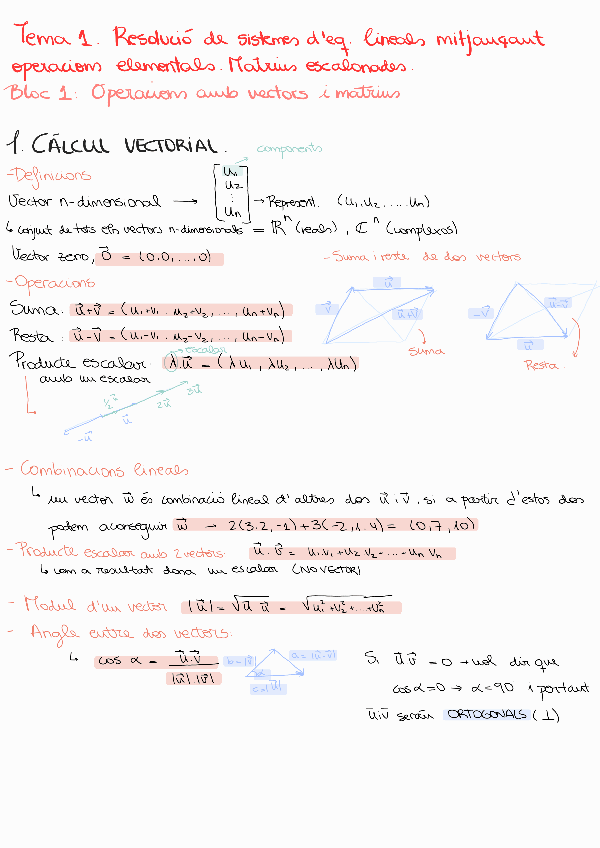 Tema 1. Resolució de sistemes d'eq. lineals mitjançant
operacions elementals. Matrius escalonades.
Bloc 1: Operacions amb vectors i matrius
1. CÀLCUL VECTORIAL.
components
- Definicions
Vector n-dimensional → [u₁ u₂ ⋮ uₙ] → Represent. (u₁, u₂, ..... uₙ)
↳ conjunt de tots els vectors n-dimensionals = ℝⁿ (reals), ℂⁿ (complexos)
Vector zero, 0⃗ = (0,0,...,0)
- Suma i resta de dos vectors
- Operacions
Suma: u⃗+v⃗ = (u₁+v₁, u₂+v₂, ..., uₙ+vₙ)
Resta: u⃗-v⃗ = (u₁-v₁, u₂-v₂, ..., uₙ-vₙ)
u⃗
v⃗
u⃗+v⃗
suma
-v⃗
u⃗-v⃗
u⃗
Resta
escalar
Producte escalar: λ.u⃗ = (λu₁, λu₂, ..., λuₙ)
amb un escalar
-u⃗ ½u⃗ u⃗ 2u⃗ 3u⃗
- Combinacions lineals
↳ un vector w⃗ és combinació lineal d'altres dos u⃗ i v⃗, si a partir d'estos dos
podem aconseguir w⃗ → 2(3,2,-1)+3(-2,1,4) = (0,7,10)
- Producte escalar amb 2 vectors: u⃗.v⃗ = u₁.v₁+u₂v₂+...+uₙvₙ
↳ com a resultat dona un escalar (NO VECTOR)
- Modul d'un vector |u⃗| = √u⃗.u⃗ = √u₁²+v₂²+...+v²ₙ
- Angle entre dos vectors:
↳ cos α = u⃗.v⃗ / |u⃗|.|v⃗|
b=|v⃗| a=|u⃗-v⃗|
α
c=|u⃗|
Si u⃗.v⃗ = 0 → vol dir que
cosα=0 → α=90 i per tant
u⃗ i v⃗ seràn ORTOGONALS (⊥)